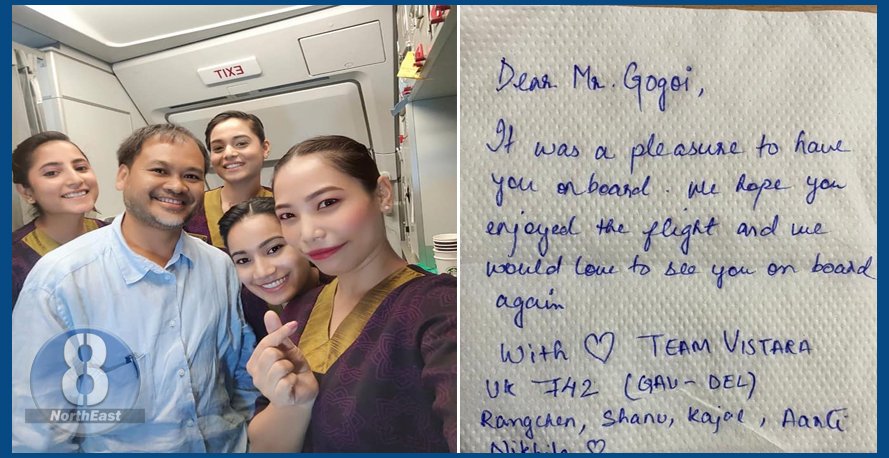 EXIT
8
NorthEast
Dear Mr. Gogoi,
It was a pleasure to have
you onboard. We hope you
enjoyed the flight and we
would love to see you on board
again
With ♡ TEAM VISTARA
UK 742 (GAU - DEL)
Rangchen, Shanu, Kajal, Aarti
Nikhil ♡